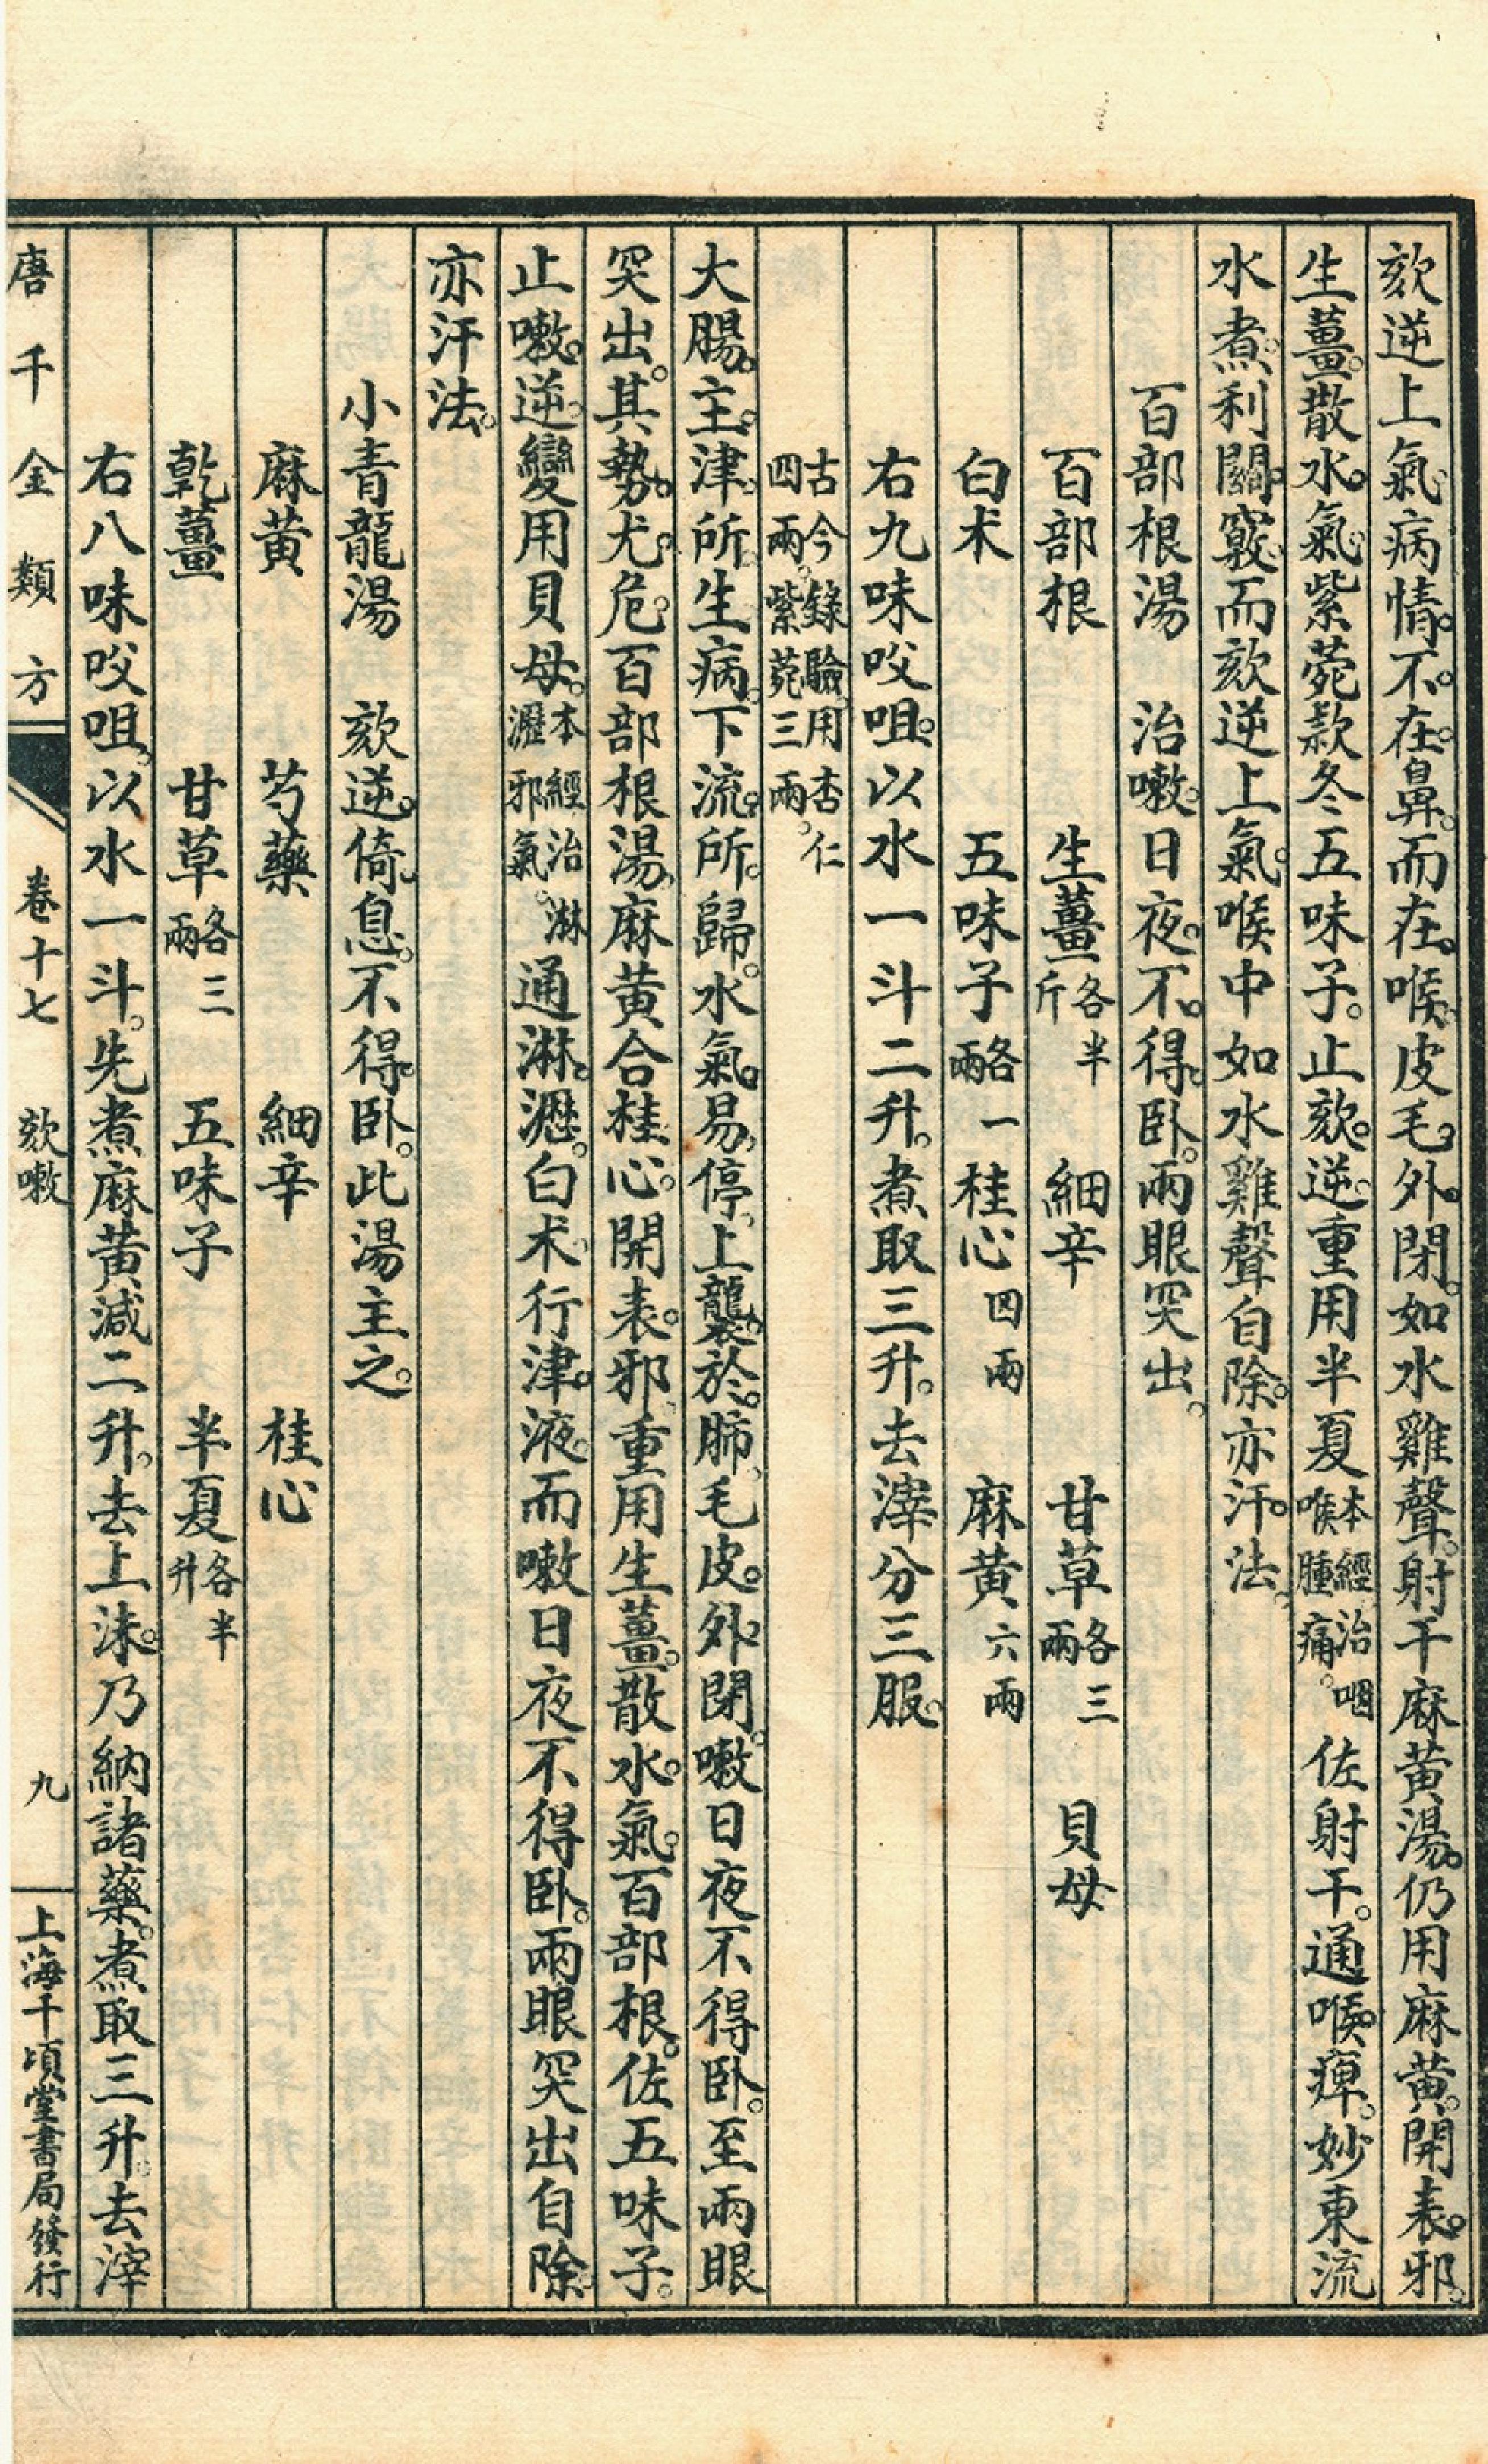 欬逆上氣病情。不在鼻。而在喉。皮毛外閉。如水雞聲。射干麻黃湯。仍用麻黃。開表邪。
生薑。散水氣。紫菀款冬五味子。止欬逆。重用半夏本經治咽喉腫痛。佐射干。通喉痺。妙東流
水煮。利關竅。而欬逆上氣。喉中如水雞聲自除。亦汗法。
百部根湯　治嗽。日夜不得臥。兩眼突出。
百部根　生薑各半斤　細辛　甘草各三兩　貝母
白朮　五味子各一兩　桂心四兩　麻黃六兩
右九味㕮咀。以水一斗二升。煮取三升。去滓分三服。
古今錄驗。用杏仁四兩。紫菀三兩。
大腸。主津。所生病。下流所歸。水氣易停。上襲於肺。毛皮外閉。嗽日夜不得臥。至兩眼
突出。其勢尤危。百部根湯。麻黃合桂心。開表邪。重用生薑。散水氣。百部根。佐五味子。
止嗽逆。變用貝母。本經治淋瀝邪氣。通淋瀝。白朮行津液。而嗽日夜不得臥。兩眼突出自除。
亦汗法。
小青龍湯　欬逆。倚息。不得臥。此湯主之。
麻黃　芍藥　細辛　桂心
乾薑　甘草各三兩　五味子　半夏各半升
右八味㕮咀。以水一斗。先煮麻黃減二升。去上沫。乃納諸藥。煮取三升。去滓
唐千金類方　卷十七　欬嗽　九　上海千頃堂書局發行